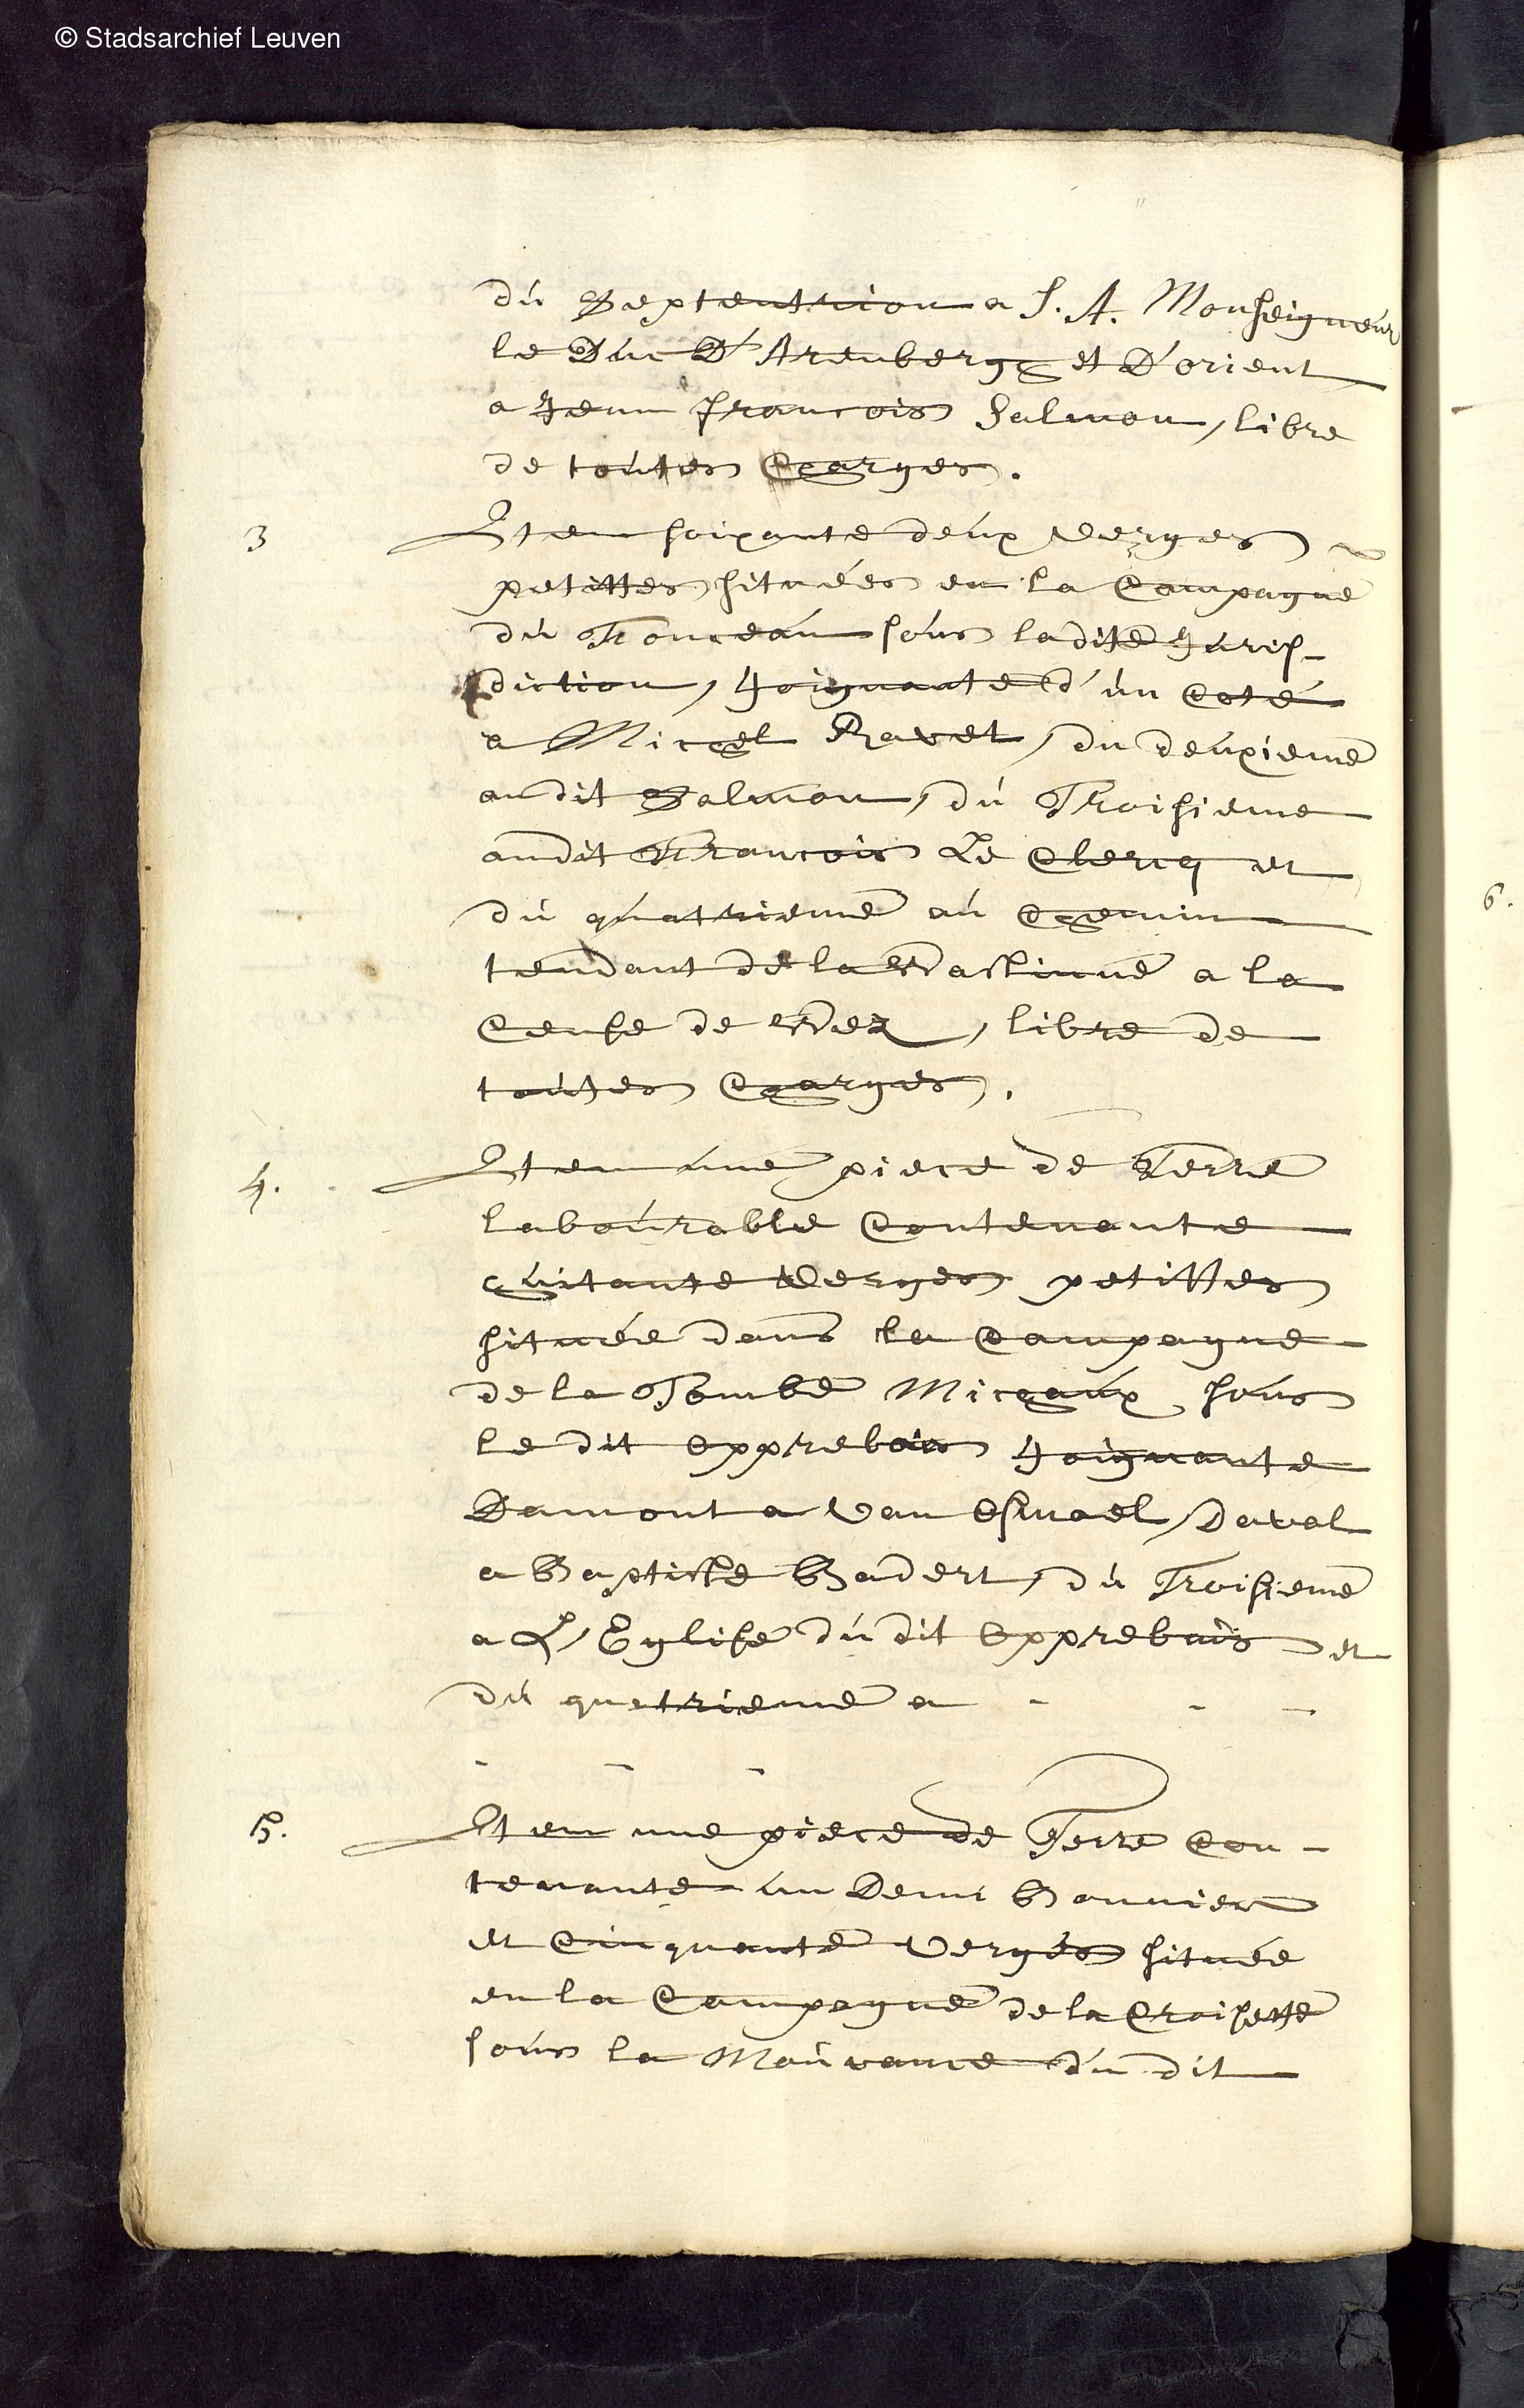 © Stadsarchief Leuven
dú Septentrion a S. A. Monseigneúr
le Dúc D'Arenberg et D'orient
a Jean francois Salmon, libre
de toútes Charges.
3 Item soixante deúx Verges
petittes sitúées en la Campagne
dú Fonceaú soús la dite Júris-
diction, Joignante d'ún Coté
a Michel Ravet, du deúxieme
au dit Salmon, dú Troisieme
au dit Francois Le Clercq et
dú qúatrieme aú Chemin
tendant de la Wastinne a la
Cense de Wez, libre de
toútes Charges.
4. Item úne piece de Terre
laboúrable Contenante
húitante Verges petittes
situèe dans la Campagne
de la Tombe Michaúx soús
le dit Opprebais Joignante
Damont a Van Esmael, Daval
a Baptiste Badert, dú Troisieme
a L'Eglise dú dit Opprebais et
dú quatrieme a - - -
- - -
5. Item une piece de Terre Con-
tenante ún Demi Bonnier
et Cinquante Verges situèe
en la Campagne de la Croisette
soús la Moúvance du dit
6.